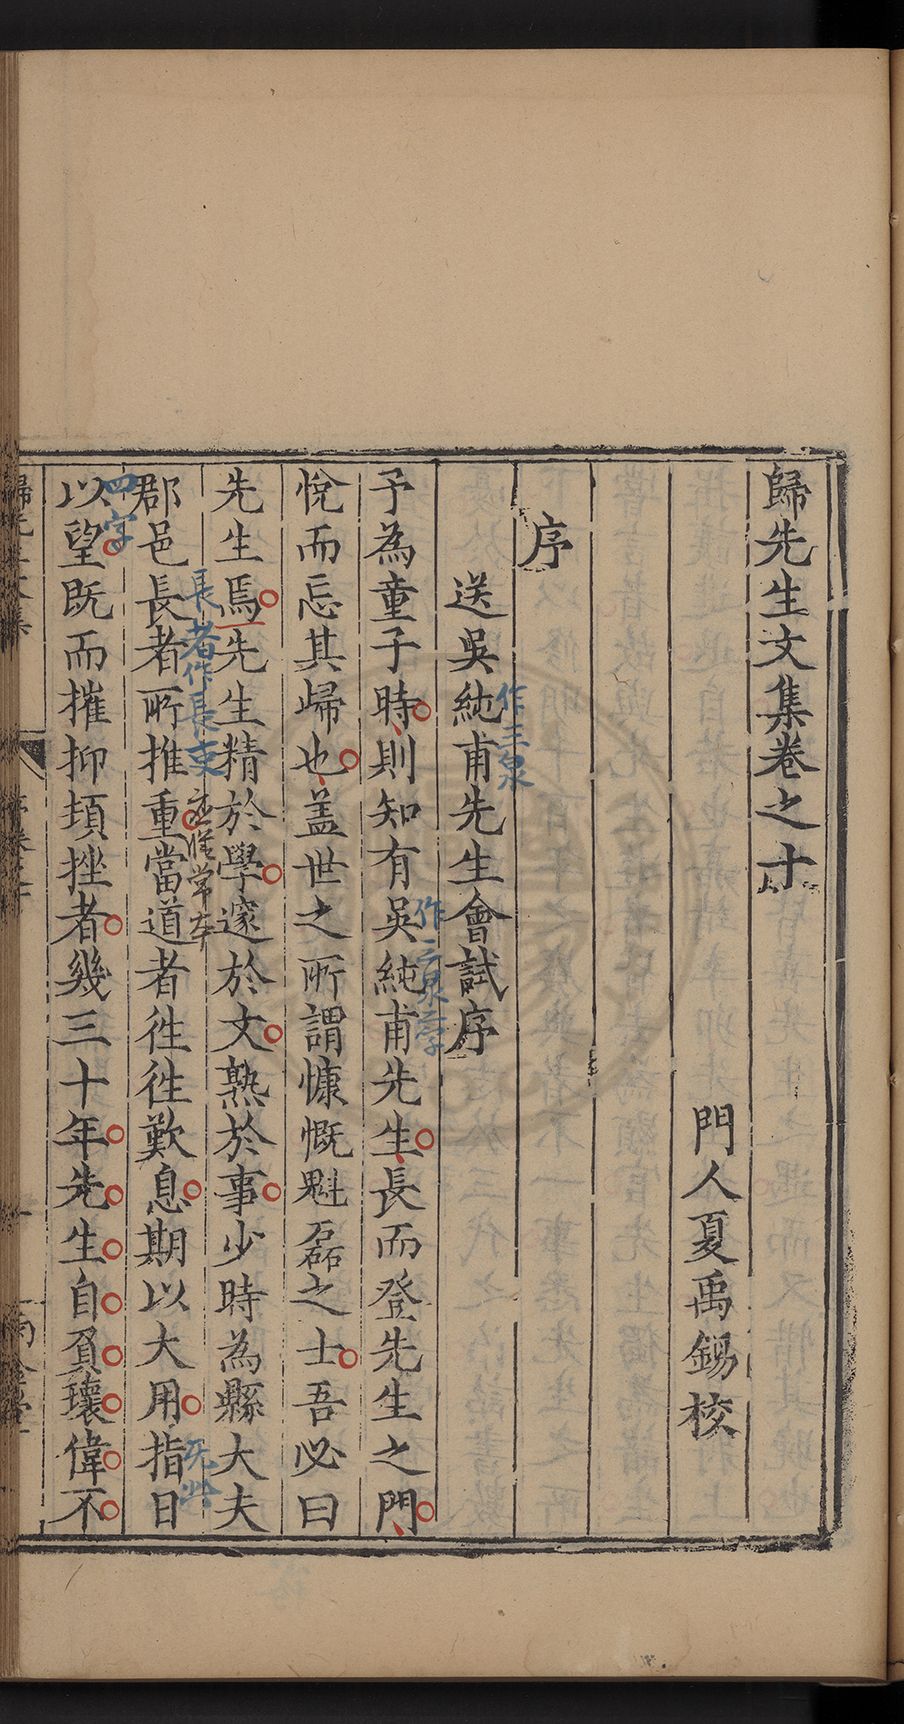 歸先生文集卷之十
門人夏禹錫校
序
送吳純甫先生會試序
作三泉
予為童子時則知有吳純甫先生長而登先生之門
作三泉二字
悅而忘其歸也蓋世之所謂慷慨魁磊之士吾必曰
先生焉先生精於學邃於文熟於事少時為縣大夫
長者作長吏
無此
郡邑長者所推重當道者往往歎息期以大用指日
四字
以望既而摧抑頓挫者幾三十年先生自負瓌偉不